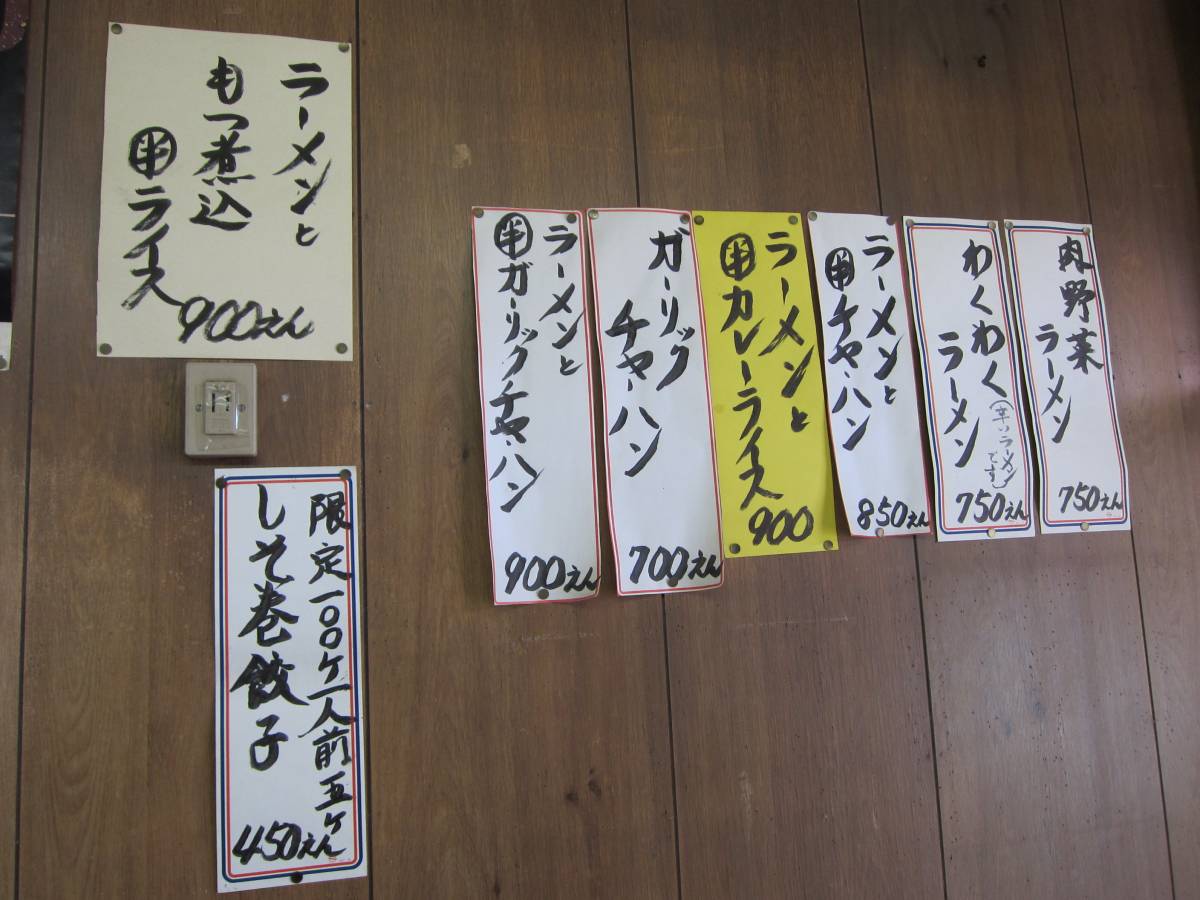 肉野菜
ラーメン
750えん
わくわく
(辛いラーメン
です)
ラーメン
750えん
ラーメンと
半チャーハン
850えん
ラーメンと
半カレーライス
900
ガーリック
チャーハン
700えん
ラーメンと
半ガーリックチャーハン
900えん
ラーメンと
もつ煮込
半ライス
900えん
限定一〇〇ケ一人前五ケ
しそ巻餃子
450えん